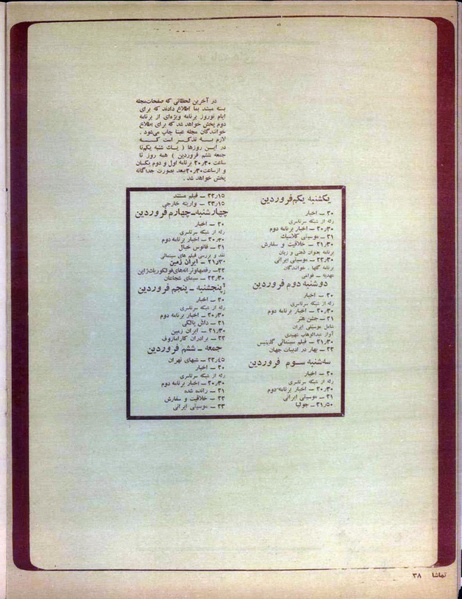 در آخرین لحظاتی که صفحات مجله
بسته میشد بما اطلاع دادند که برای
ایام نوروز برنامه ویژه‌ای از برنامه
دوم پخش خواهد شد که برای اطلاع
خوانندگان مجله عینا چاپ می‌شود.
لازم به تذکر است که
در این روزها (یک شنبه یکم تا
جمعه ششم فروردین) همه روز تا
ساعت ۲۰٫۳۰ برنامه اول و دوم یکسان
و از ساعت ۲۰٫۳۰ بعد بصورت جداگانه
پخش خواهد شد.
یکشنبه یکم فروردین
۲۰ ـ اخبار
رله از شبکه سراسری
۲۰٫۳۰ ـ اخبار برنامه دوم
۲۱ ـ موسیقی کلاسیک
۲۱٫۳۰ ـ خلاقیت و سفارش
برنامه بعنوان فحی و زبان
۲۲٫۳۰ ـ موسیقی ایرانی
برنامه گلها ـ خوانندگان
دوشنبه دوم فروردین
۲۰ ـ اخبار
رله از شبکه سراسری
۲۰٫۳۰ ـ اخبار برنامه دوم
۲۱ ـ جشن هنر
شامل موسیقی ایران
۲۱٫۳۰ ـ فیلم سینمائی
۲۳ ـ بهار در ادبیات جهان
سه‌شنبه سوم فروردین
۲۰ ـ اخبار
رله از شبکه سراسری
۲۰٫۳۰ ـ اخبار برنامه دوم
۲۱ ـ موسیقی ایرانی
۲۱٫۵۰ ـ جولیا
۲۲٫۱۵ ـ فیلم مستند
۲۳٫۱۵ ـ واریته خارجی
چهارشنبه ـ چهارم فروردین
۲۰ ـ اخبار
رله از شبکه سراسری
۲۰٫۳۰ ـ اخبار برنامه دوم
۲۱ ـ فانوس خیال
نقد و بررسی فیلم های سینمائی
۲۱٫۳۰ ـ ایران زمین
۲۲٫۳۰ ـ سیمای شجاعان
پنجشنبه ـ پنجم فروردین
۲۰ ـ اخبار
رله از شبکه سراسری
۲۰٫۳۰ ـ اخبار برنامه دوم
۲۱ ـ دانش بالکی
۲۱٫۳۰ ـ ایران زمین
۲۲ ـ برادران کارامازوف
جمعه ـ ششم فروردین
۲۲٫۴۵ ـ شبهای تهران
۲۰ ـ اخبار
رله از شبکه سراسری
۲۰٫۳۰ ـ اخبار برنامه دوم
۲۱ ـ رانده شده
۲۲ ـ خلاقیت و سفارش
۲۳ ـ موسیقی ایرانی
تماشا ۳۸